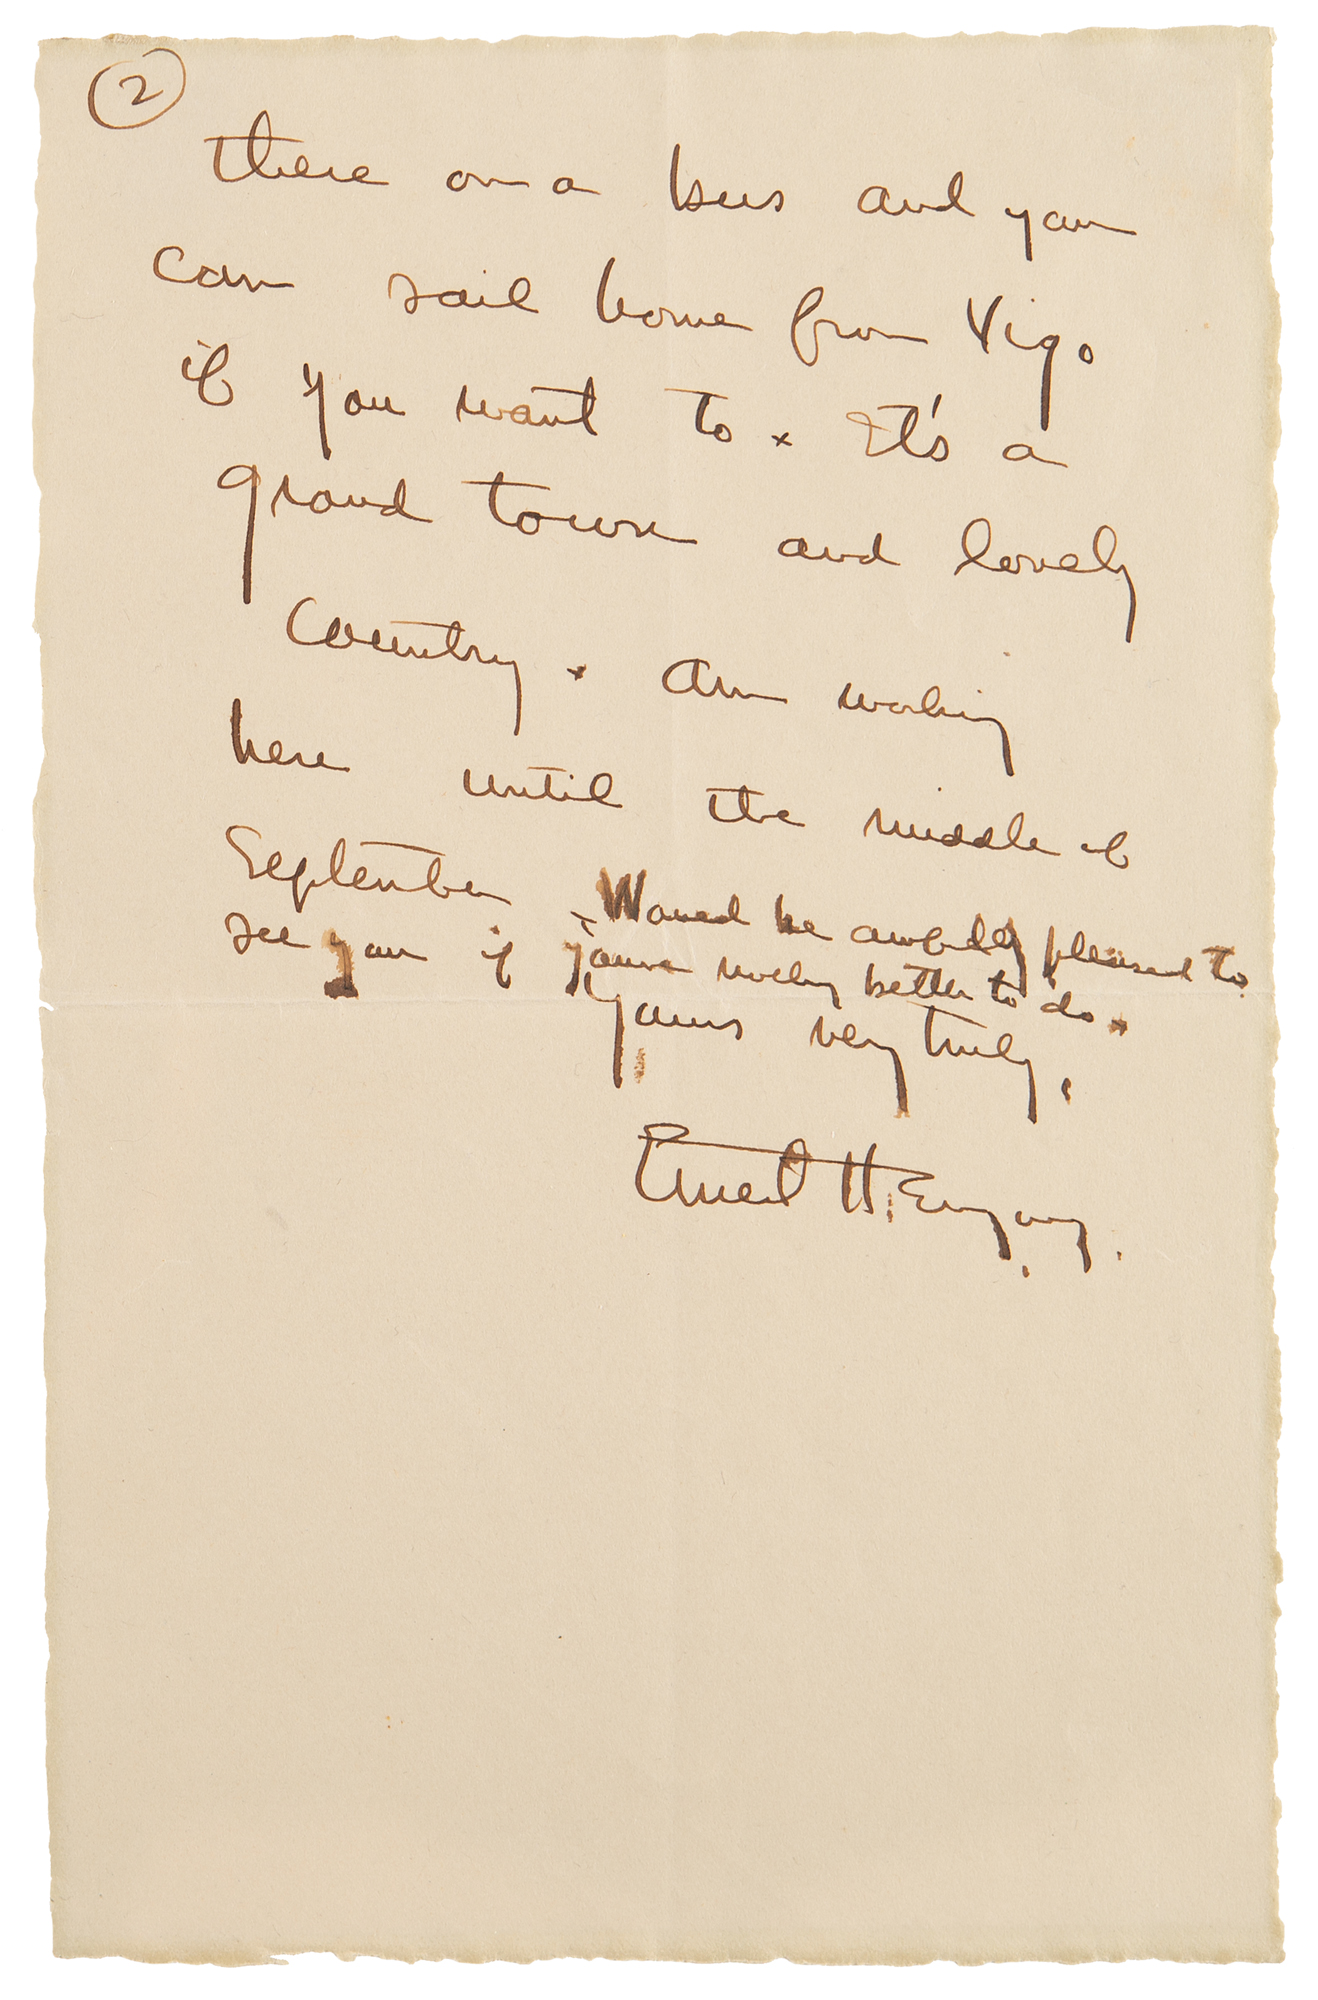 ②
there on a bus and you
can sail home from Vigo
if you want to x It's a
grand town and lovely
country x Am working
here until the middle of
September x Would be awfully pleased to
see you if you've nothing better to do x
Yours very truly,
Ernest Hemingway.